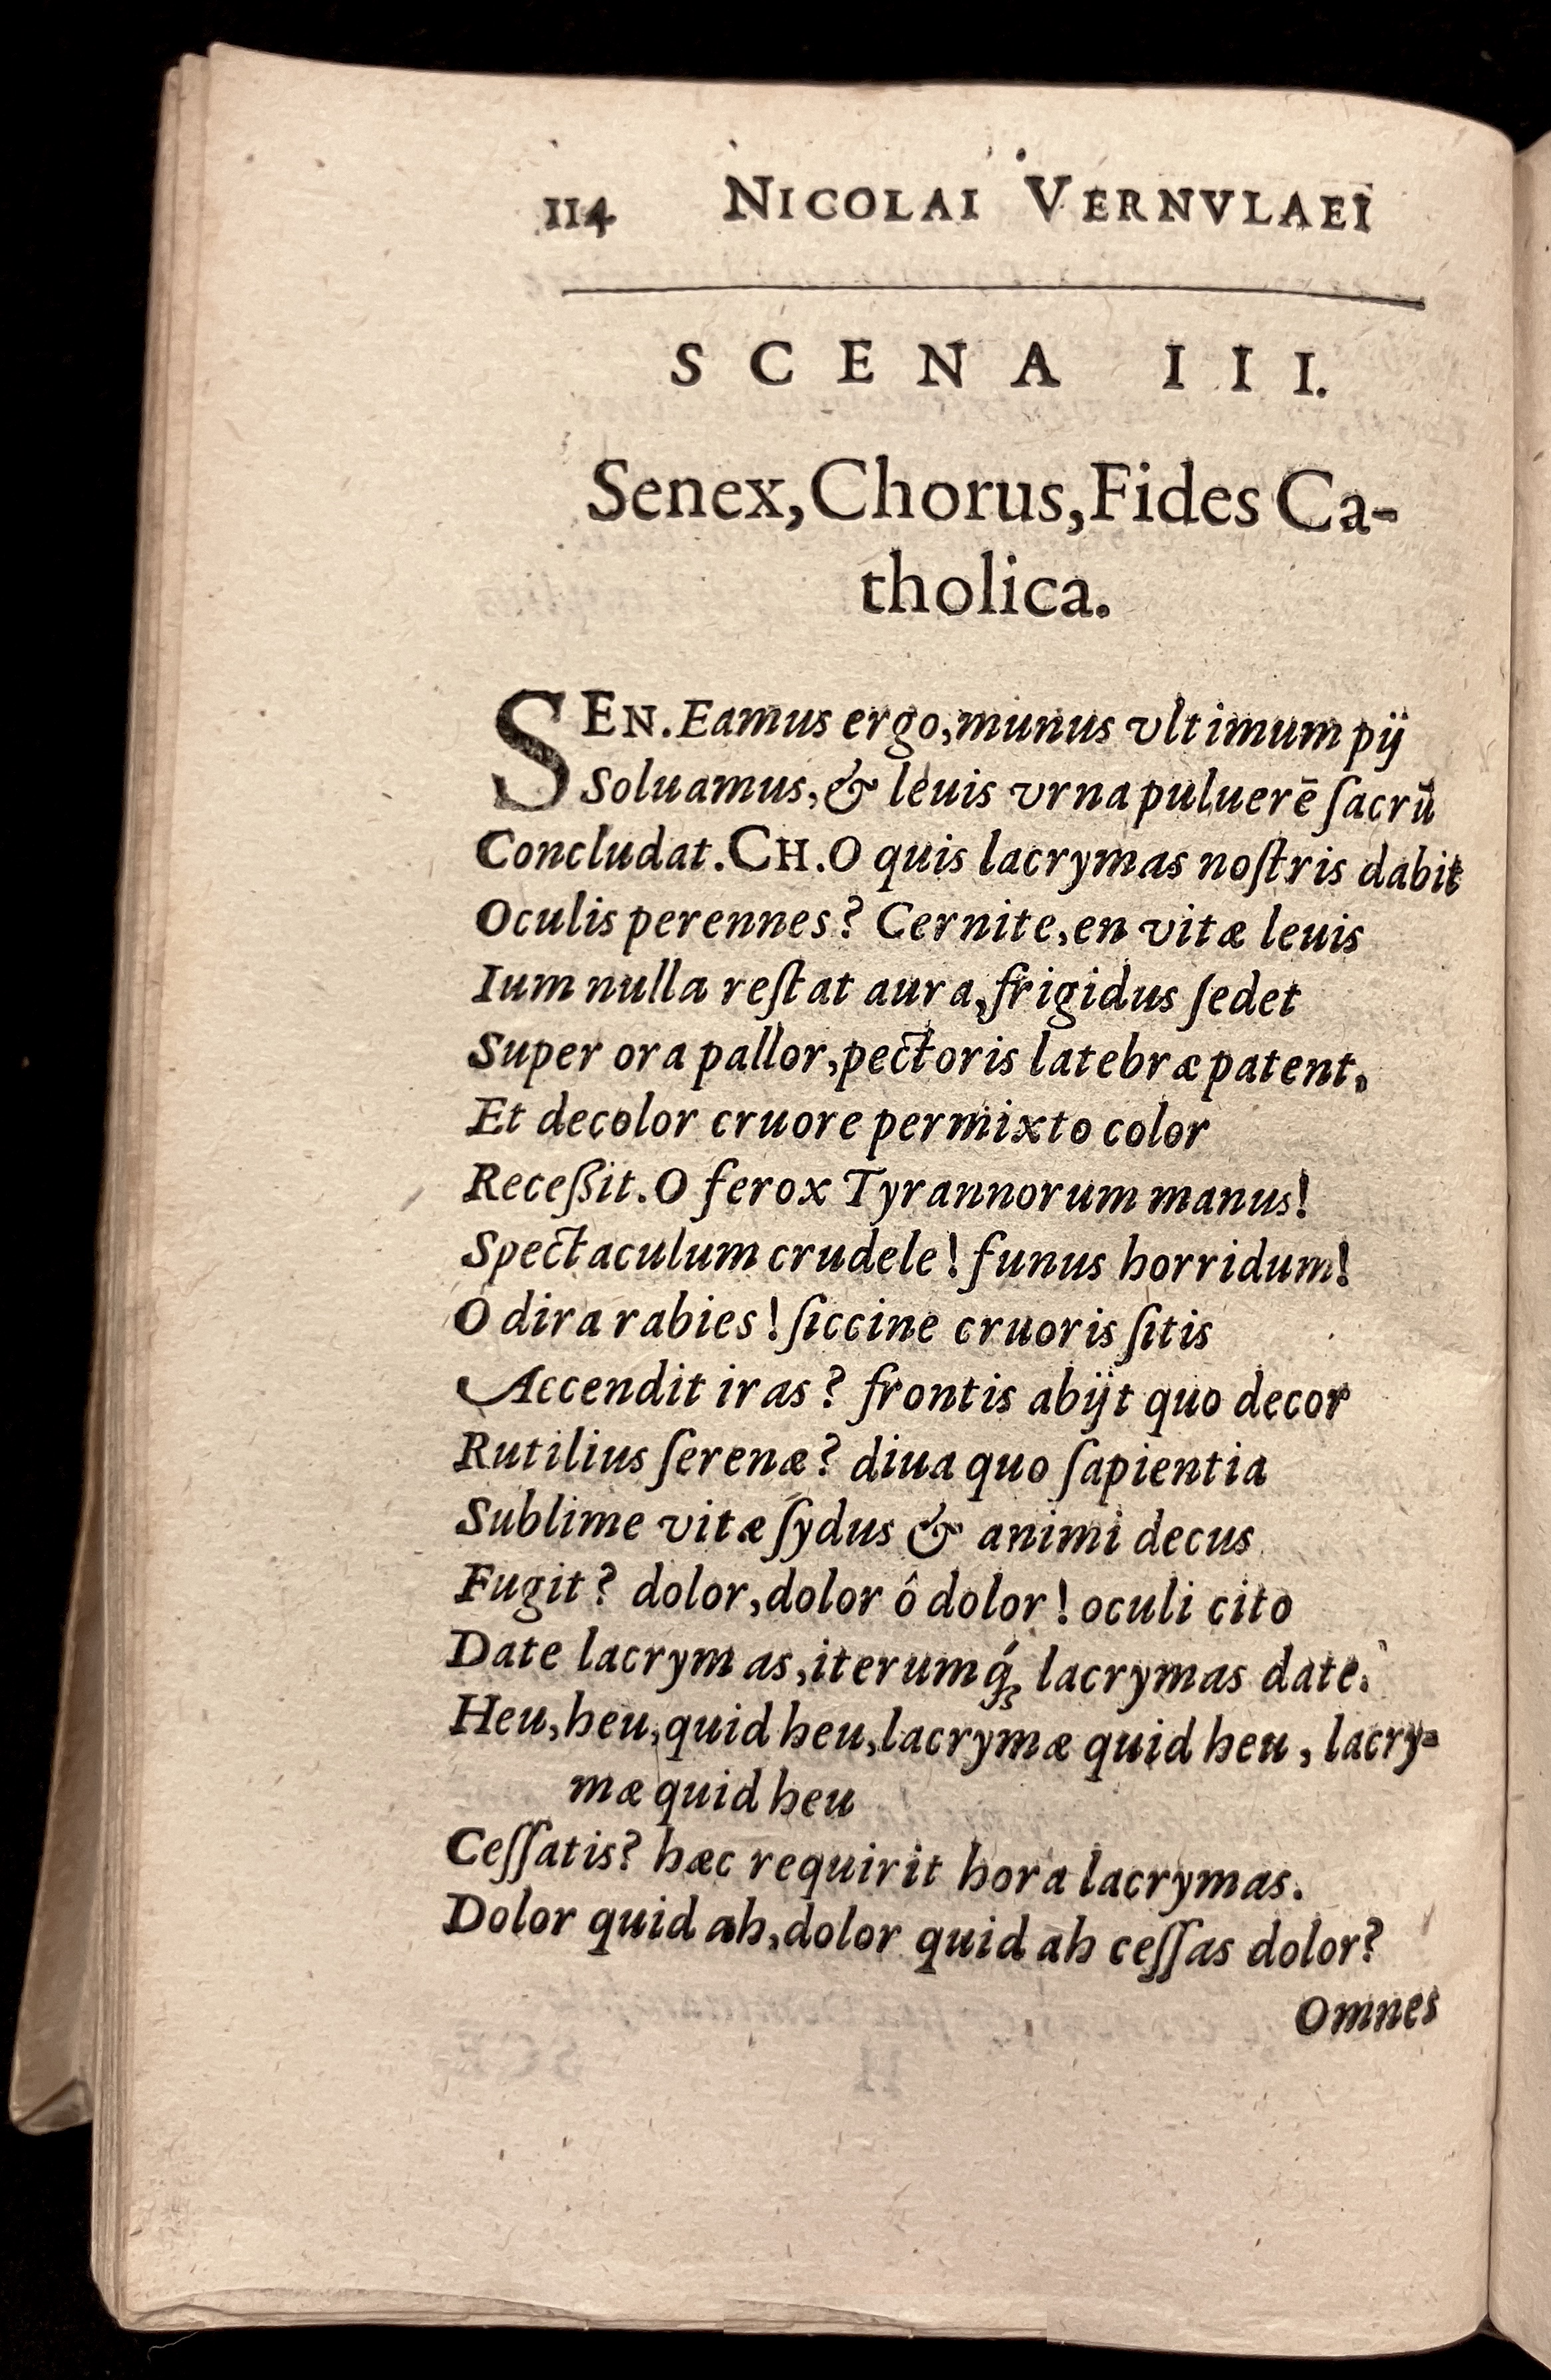 114 NICOLAI VERNVLAEI
SCENA III.
Senex, Chorus, Fides Ca-
tholica.
SEN. Eamus ergo, munus vltimum pij
Soluamus, & leuis vrna puluerē ſacrū
Concludat. CH. O quis lacrymas noſtris dabit
Oculis perennes? Cernite, en vitæ leuis
Ium nulla reſtat aura, frigidus ſedet
Super ora pallor, pectoris latebræ patent,
Et decolor cruore permixto color
Receßit. O ferox Tyrannorum manus!
Spectaculum crudele! funus horridum!
O dira rabies! ſiccine cruoris ſitis
Accendit iras? frontis abijt quo decor
Rutilius ſerenæ? diua quo ſapientia
Sublime vitæ ſydus & animi decus
Fugit? dolor, dolor ô dolor! oculi cito
Date lacrymas, iterumq́; lacrymas date.
Heu, heu, quid heu, lacrymæ quid heu, lacry-
mæ quid heu
Ceſſatis? hæc requirit hora lacrymas.
Dolor quid ah, dolor quid ah ceſſas dolor?
Omnes